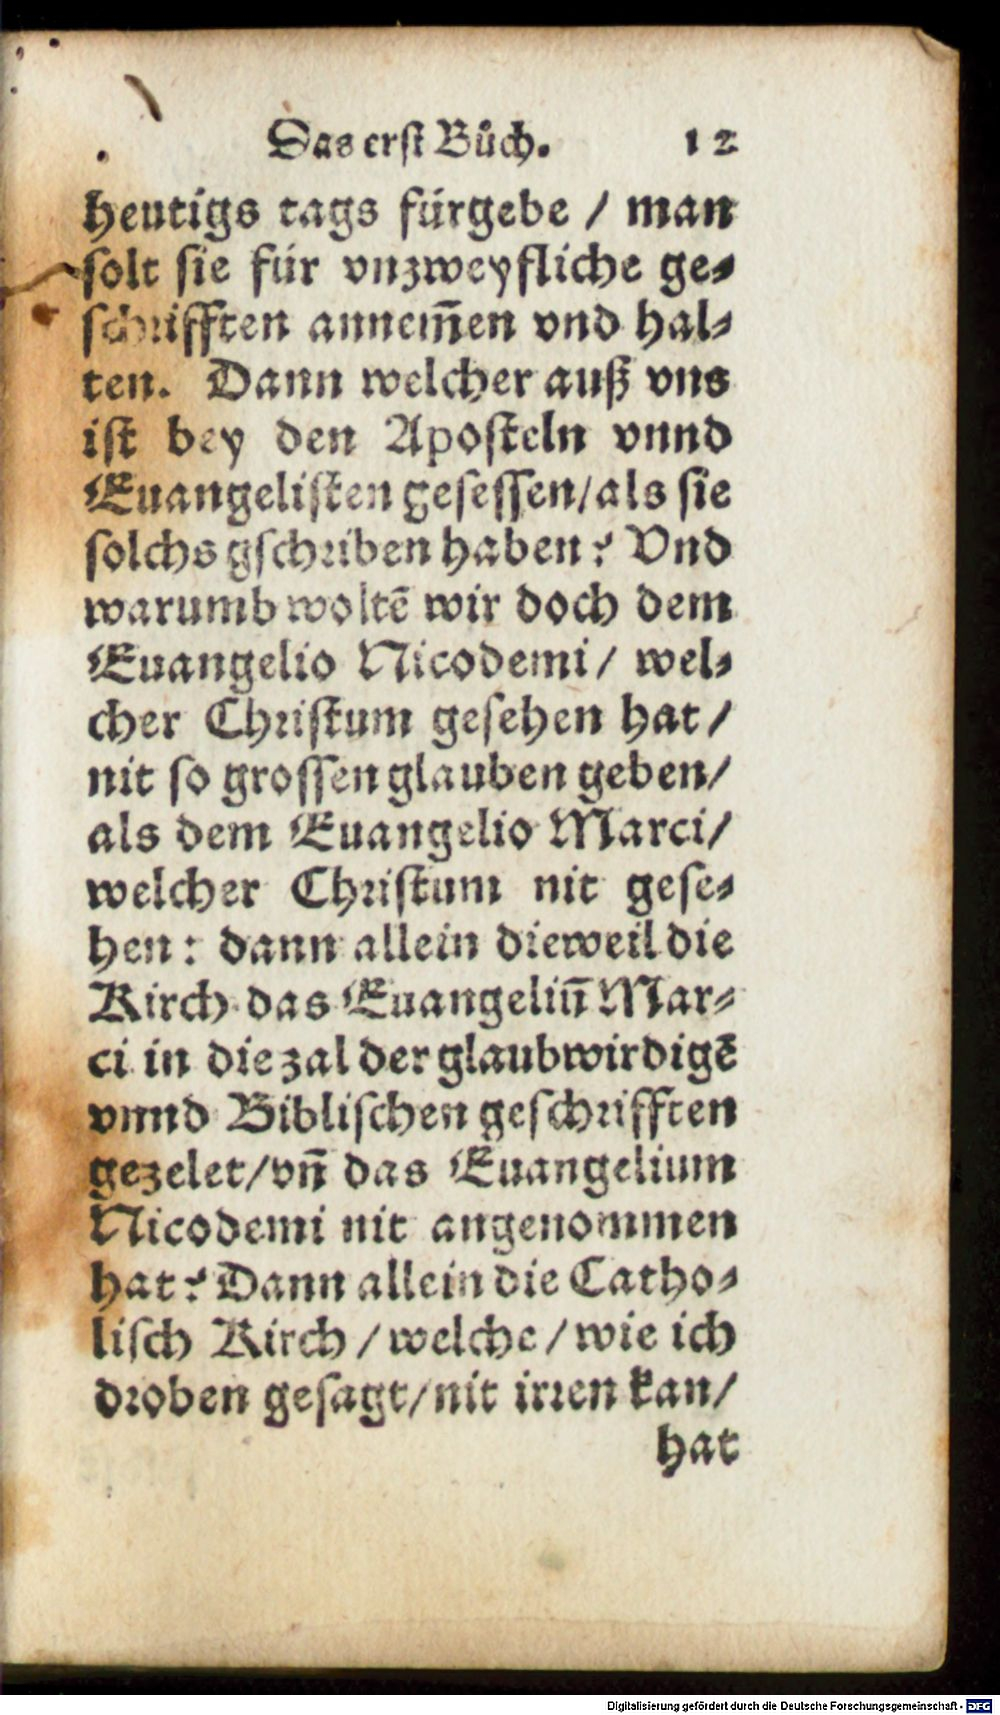 Das erst Bůch. 12
heutigs tags fürgebe / man
solt sie für vnzweyfliche ge⸗
schrifften annem̃en vnd hal⸗
ten. Dann welcher auß vns
ist bey den Aposteln vnnd
Euangelisten gesessen/als sie
solchs gschriben haben? Vnd
warumb woltē wir doch dem
Euangelio Nicodemi/ wel⸗
cher Christum gesehen hat/
nit so grossen glauben geben/
als dem Euangelio Marci/
welcher Christum nit gese⸗
hen: dann allein dieweil die
Kirch das Euangeliũ Mar⸗
ci in die zal der glaubwirdigē
vnnd Biblischen geschrifften
gezelet/vñ das Euangelium
Nicodemi nit angenommen
hat? Dann allein die Catho⸗
lisch Kirch/welche/wie ich
droben gesagt/nit irren kan/
hat
Digitalisierung gefördert durch die Deutsche Forschungsgemeinschaft - DFG